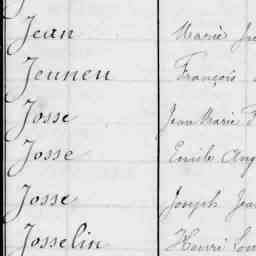 Jean Marie
Jeuneu François
Josse Jean Marie
Josse Emile Ang
Josse Joseph Jea
Josselin Henri Lou